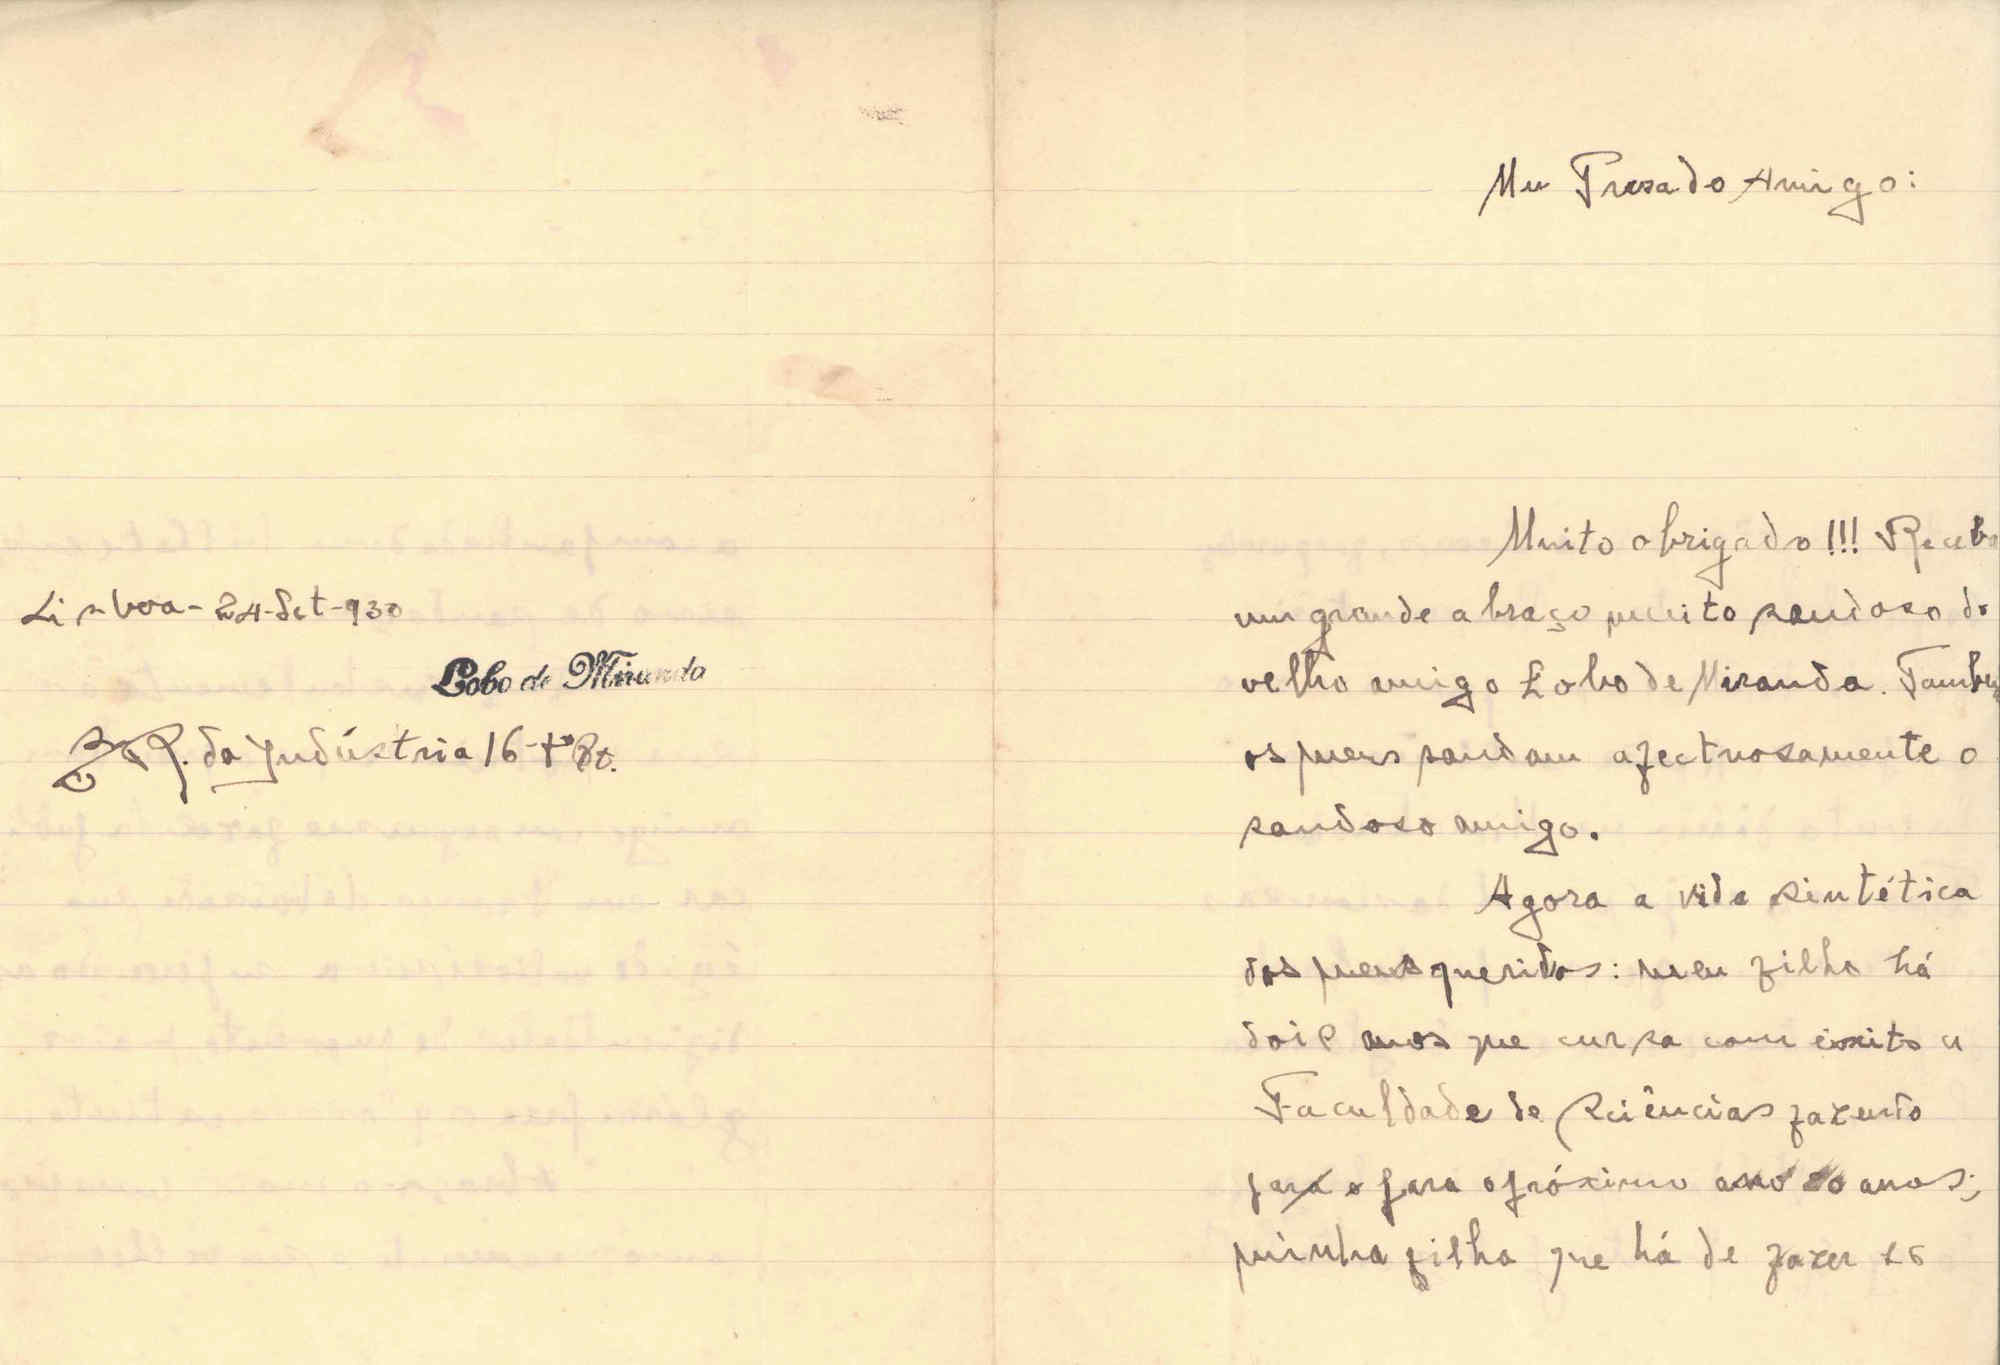 Lisboa - 24-Set-930
Lobo de Miranda
R. da Indústria 16-
Meu Presado Amigo:
Muito obrigado!!! Receba
um grande abraço muito saudoso do
velho amigo Lobo de Miranda. Tambem
os meus saudam afectuosamente o
saudoso amigo.
Agora a vida sintética
dos meus queridos: meu filho há
dois anos que cursa com éxito a
Faculdade de Sciências fazendo
para o próximo ano 20 anos;
minha filha que há de fazer